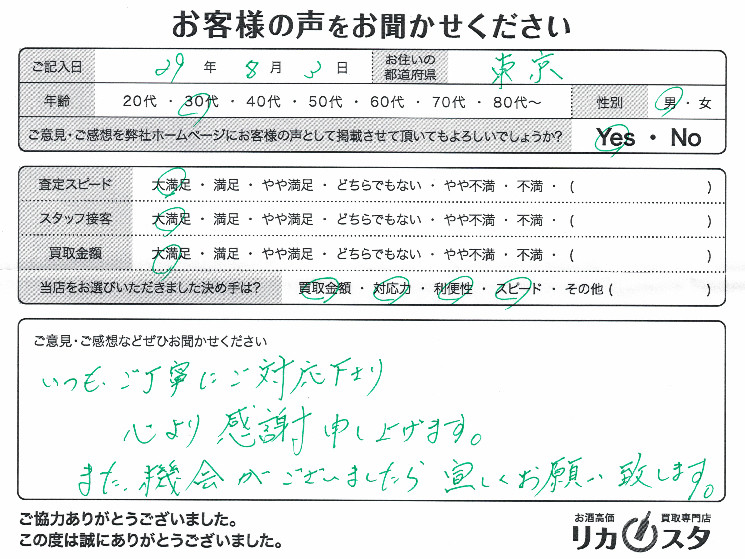 お客様の声をお聞かせください
ご記入日 29 年 8 月 3 日 お住いの都道府県 東京
年齢 20代 ・ 30代 ・ 40代 ・ 50代 ・ 60代 ・ 70代 ・ 80代～ 性別 男 ・ 女
ご意見・ご感想を弊社ホームページにお客様の声として掲載させて頂いてもよろしいでしょうか? Yes ・ No
査定スピード 大満足 ・ 満足 ・ やや満足 ・ どちらでもない ・ やや不満 ・ 不満 ・ ( )
スタッフ接客 大満足 ・ 満足 ・ やや満足 ・ どちらでもない ・ やや不満 ・ 不満 ・ ( )
買取金額 大満足 ・ 満足 ・ やや満足 ・ どちらでもない ・ やや不満 ・ 不満 ・ ( )
当店をお選びいただきました決め手は? 買取金額 ・ 対応力 ・ 利便性 ・ スピード ・ その他 ( )
ご意見・ご感想などぜひお聞かせください
いつも、ご丁寧にご対応下さり
心より感謝申し上げます。
また、機会がございましたら宜しくお願い致します。
ご協力ありがとうございました。
この度は誠にありがとうございました。
お酒高価 買取専門店
リカスタ